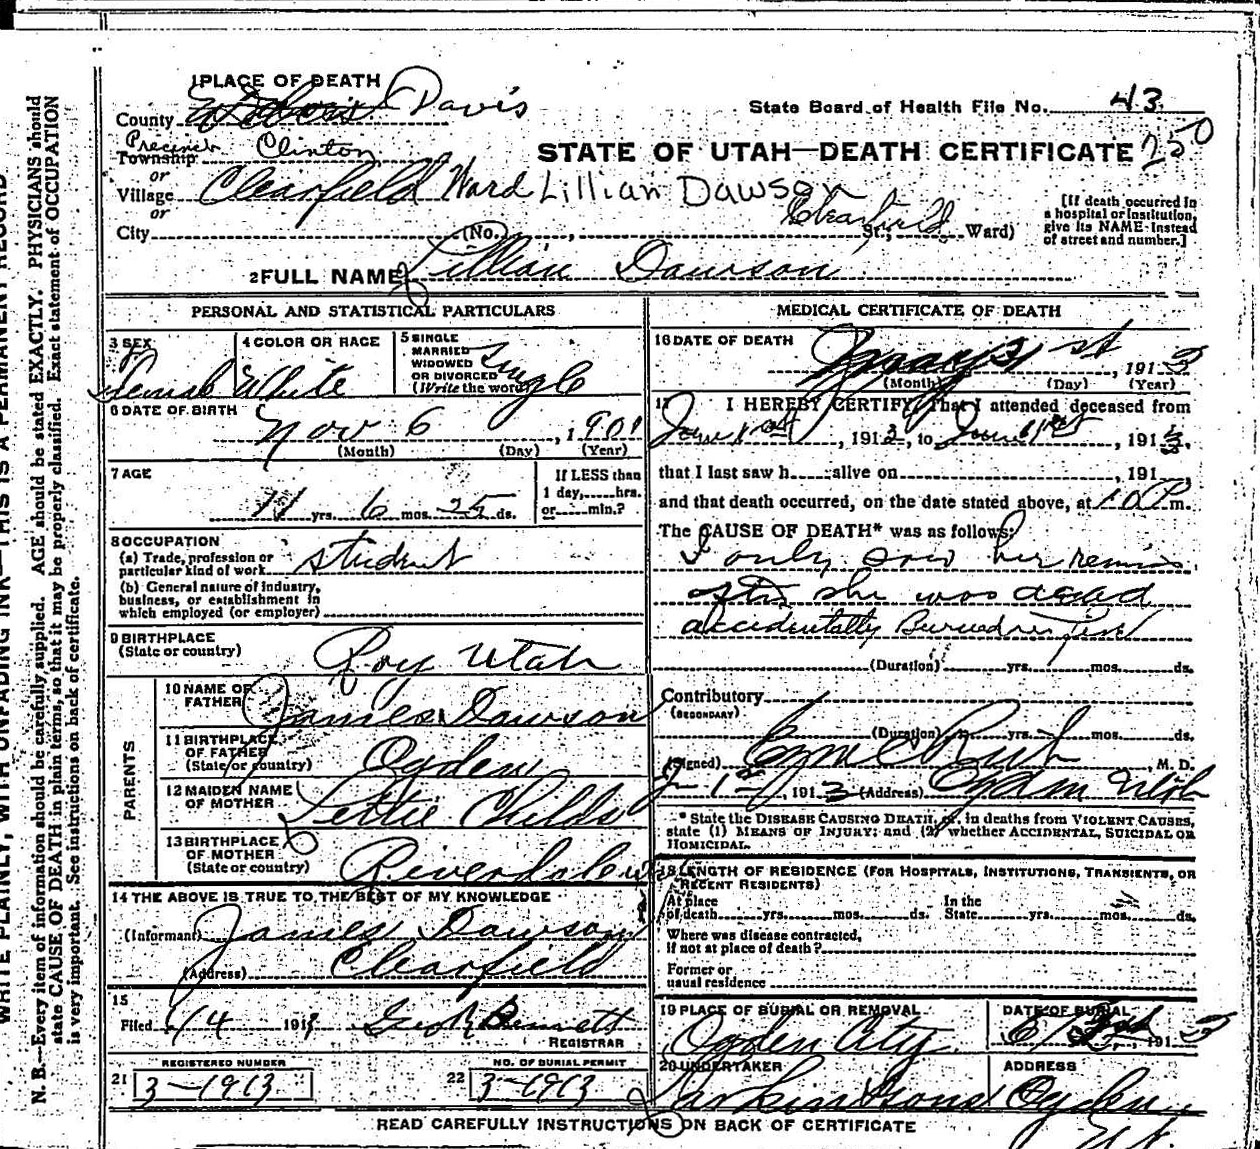 WRITE PLAINLY, WITH UNFADING INK—THIS IS A PERMANENT RECORD
N. B.—Every item of information should be carefully supplied. AGE should be stated EXACTLY. PHYSICIANS should
state CAUSE OF DEATH in plain terms, so that it may be properly classified. Exact statement of OCCUPATION
is very important. See instructions on back of certificate.
1 PLACE OF DEATH
County Davis
State Board of Health File No. 43
Precinct Township Clinton
or
STATE OF UTAH—DEATH CERTIFICATE 250
Village Clearfield Ward Lillian Dawson
or
City (No. , Clearfield St.; Ward)
[If death occurred in
a hospital or institution,
give its NAME instead
of street and number.]
2 FULL NAME Lillian Dawson
PERSONAL AND STATISTICAL PARTICULARS
3 SEX
Female
4 COLOR OR RACE
White
5 SINGLE
MARRIED
WIDOWED
OR DIVORCED
(Write the word)
Single
6 DATE OF BIRTH
Nov 6, 1901
(Month) (Day) (Year)
7 AGE
11 yrs. 6 mos. 25 ds.
If LESS than
1 day, hrs.
or min.?
8 OCCUPATION
(a) Trade, profession or
particular kind of work student
(b) General nature of industry,
business, or establishment in
which employed (or employer)
9 BIRTHPLACE
(State or country)
Roy Utah
PARENTS
10 NAME OF
FATHER
James Dawson
11 BIRTHPLACE
OF FATHER
(State or country)
Ogden
12 MAIDEN NAME
OF MOTHER
Lettie Childs
13 BIRTHPLACE
OF MOTHER
(State or country)
Riverdale
14 THE ABOVE IS TRUE TO THE BEST OF MY KNOWLEDGE
(Informant) James Dawson
(Address) Clearfield
15
Filed 6/4 191 Bennett
REGISTRAR
REGISTERED NUMBER
21 3-1913
NO. OF BURIAL PERMIT
22 3-1913
MEDICAL CERTIFICATE OF DEATH
16 DATE OF DEATH
31st, 1913
(Month) (Day) (Year)
17 I HEREBY CERTIFY, That I attended deceased from
June 1st, 1913, to June 1st, 1913,
that I last saw h alive on , 191
and that death occurred, on the date stated above, at 10 P m.
The CAUSE OF DEATH* was as follows:
I only saw her remains
after she was dead
accidentally Burned
(Duration) yrs. mos. ds.
Contributory
(SECONDARY)
(Duration) yrs. mos. ds.
(Signed) Rich, M. D.
1st, 1913 (Address) Ogden Utah
* State the DISEASE CAUSING DEATH, or, in deaths from VIOLENT CAUSES,
state (1) MEANS OF INJURY; and (2) whether ACCIDENTAL, SUICIDAL OR
HOMICIDAL.
18 LENGTH OF RESIDENCE (FOR HOSPITALS, INSTITUTIONS, TRANSIENTS, OR
RECENT RESIDENTS)
At place
of death yrs. mos. ds.
In the
State yrs. mos. ds.
Where was disease contracted,
If not at place of death?
Former or
usual residence
19 PLACE OF BURIAL OR REMOVAL
Ogden City
DATE OF BURIAL
6/ 1913
20 UNDERTAKER
Larkin & Sons
ADDRESS
Ogden
Ut.
READ CAREFULLY INSTRUCTIONS ON BACK OF CERTIFICATE